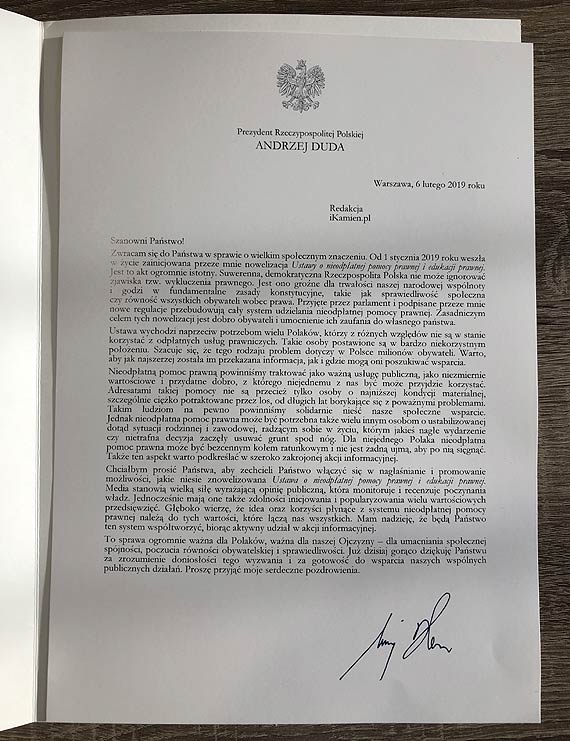 Prezydent Rzeczypospolitej Polskiej
ANDRZEJ DUDA
Warszawa, 6 lutego 2019 roku
Redakcja
iKamien.pl
Szanowni Państwo!
Zwracam się do Państwa w sprawie o wielkim społecznym znaczeniu. Od 1 stycznia 2019 roku weszła
w życie zainicjowana przeze mnie nowelizacja Ustawy o nieodpłatnej pomocy prawnej i edukacji prawnej.
Jest to akt ogromnie istotny. Suwerenna, demokratyczna Rzeczpospolita Polska nie może ignorować
zjawiska tzw. wykluczenia prawnego. Jest ono groźne dla trwałości naszej narodowej wspólnoty
i godzi w fundamentalne zasady konstytucyjne, takie jak sprawiedliwość społeczna
czy równość wszystkich obywateli wobec prawa. Przyjęte przez parlament i podpisane przeze mnie
nowe regulacje przebudowują cały system udzielania nieodpłatnej pomocy prawnej. Zasadniczym
celem tych nowelizacji jest dobro obywateli i umocnienie ich zaufania do własnego państwa.
Ustawa wychodzi naprzeciw potrzebom wielu Polaków, którzy z różnych względów nie są w stanie
korzystać z odpłatnych usług prawniczych. Takie osoby postawione są w bardzo niekorzystnym
położeniu. Szacuje się, że tego rodzaju problem dotyczy w Polsce milionów obywateli. Warto,
aby jak najszerzej została im przekazana informacja, jak i gdzie mogą oni poszukiwać wsparcia.
Nieodpłatną pomoc prawną powinniśmy traktować jako ważną usługę publiczną, jako niezmiernie
wartościowe i przydatne dobro, z którego niejednemu z nas być może przyjdzie korzystać.
Adresatami takiej pomocy nie są przecież tylko osoby o najniższej kondycji materialnej,
szczególnie ciężko potraktowane przez los, od długich lat borykające się z poważnymi problemami.
Takim ludziom na pewno powinniśmy solidarnie nieść nasze społeczne wsparcie.
Jednak nieodpłatna pomoc prawna może być potrzebna także wielu innym osobom o ustabilizowanej
dotąd sytuacji rodzinnej i zawodowej, radzącym sobie w życiu, którym jakieś nagłe wydarzenie
czy nietrafna decyzja zaczęły usuwać grunt spod nóg. Dla niejednego Polaka nieodpłatna
pomoc prawna może być bezcennym kołem ratunkowym i nie jest żadną ujmą, aby po nią sięgnąć.
Także ten aspekt warto podkreślać w szeroko zakrojonej akcji informacyjnej.
Chciałbym prosić Państwa, aby zechcieli Państwo włączyć się w nagłaśnianie i promowanie
możliwości, jakie niesie znowelizowana Ustawa o nieodpłatnej pomocy prawnej i edukacji prawnej.
Media stanowią wielką siłę wyrażającą opinię publiczną, która monitoruje i recenzuje poczynania
władz. Jednocześnie mają one także zdolności inicjowania i popularyzowania wielu wartościowych
przedsięwzięć. Głęboko wierzę, że idea oraz korzyści płynące z systemu nieodpłatnej pomocy
prawnej należą do tych wartości, które łączą nas wszystkich. Mam nadzieję, że będą Państwo
ten system współtworzyć, biorąc aktywny udział w akcji informacyjnej.
To sprawa ogromnie ważna dla Polaków, ważna dla naszej Ojczyzny – dla umacniania społecznej
spójności, poczucia równości obywatelskiej i sprawiedliwości. Już dzisiaj gorąco dziękuję Państwu
za zrozumienie doniosłości tego wyzwania i za gotowość do wsparcia naszych wspólnych
publicznych działań. Proszę przyjąć moje serdeczne pozdrowienia.